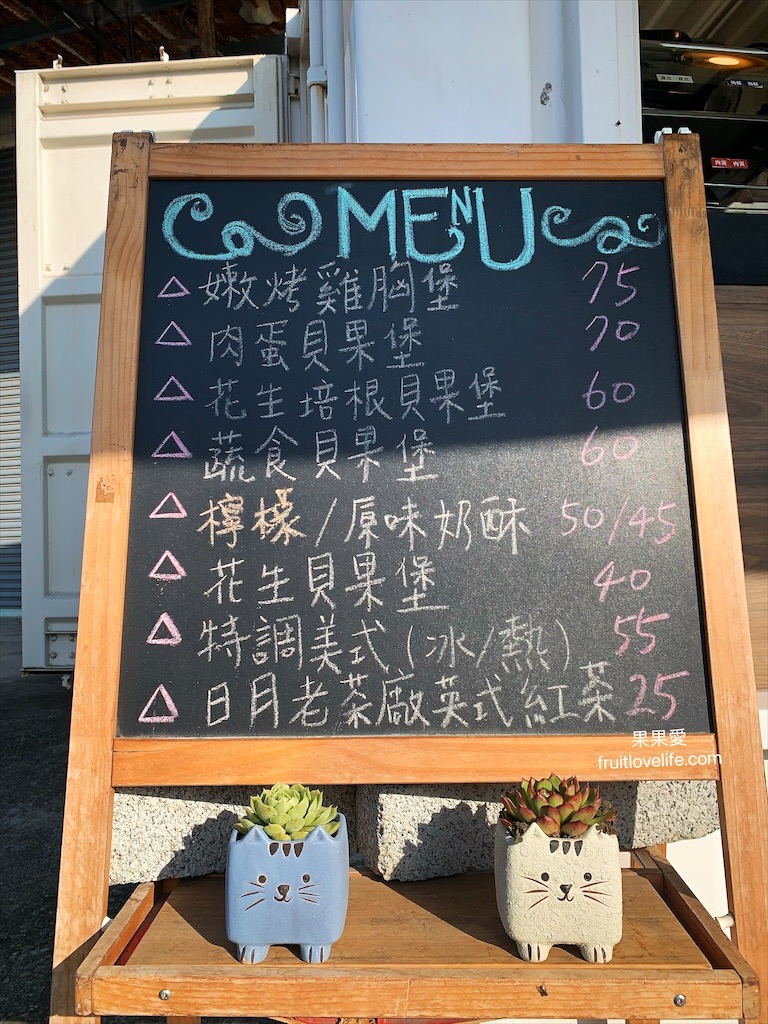 MENU
△ 嫩烤雞胸堡 75
△ 肉蛋貝果堡 70
△ 花生培根貝果堡 60
△ 蔬食貝果堡 60
△ 檸檬/原味奶酥 50/45
△ 花生貝果堡 40
△ 特調美式(冰/熱) 55
△ 日月老茶廠英式紅茶 25
果果愛
fruitlovelife.com